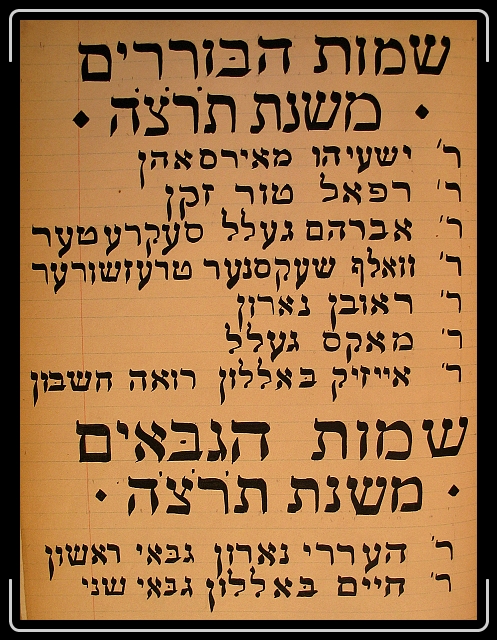 שמות הבוררים
משנת תרצ̇ה̇
ר' ישעיהו מאירסאהן
ר' רפאל טור זקן
ר' אברהם געלל סעקרעטער
ר' וואלף שעקסנער טרעזשורער
ר' ראובן נארון
ר' מאקס געלל
ר' אייזיק באללון רואה חשבון
שמות הגבאים
משנת תרצ̇ה̇
ר' העררי נארון גבאי ראשון
ר' חיים באללון גבאי שני